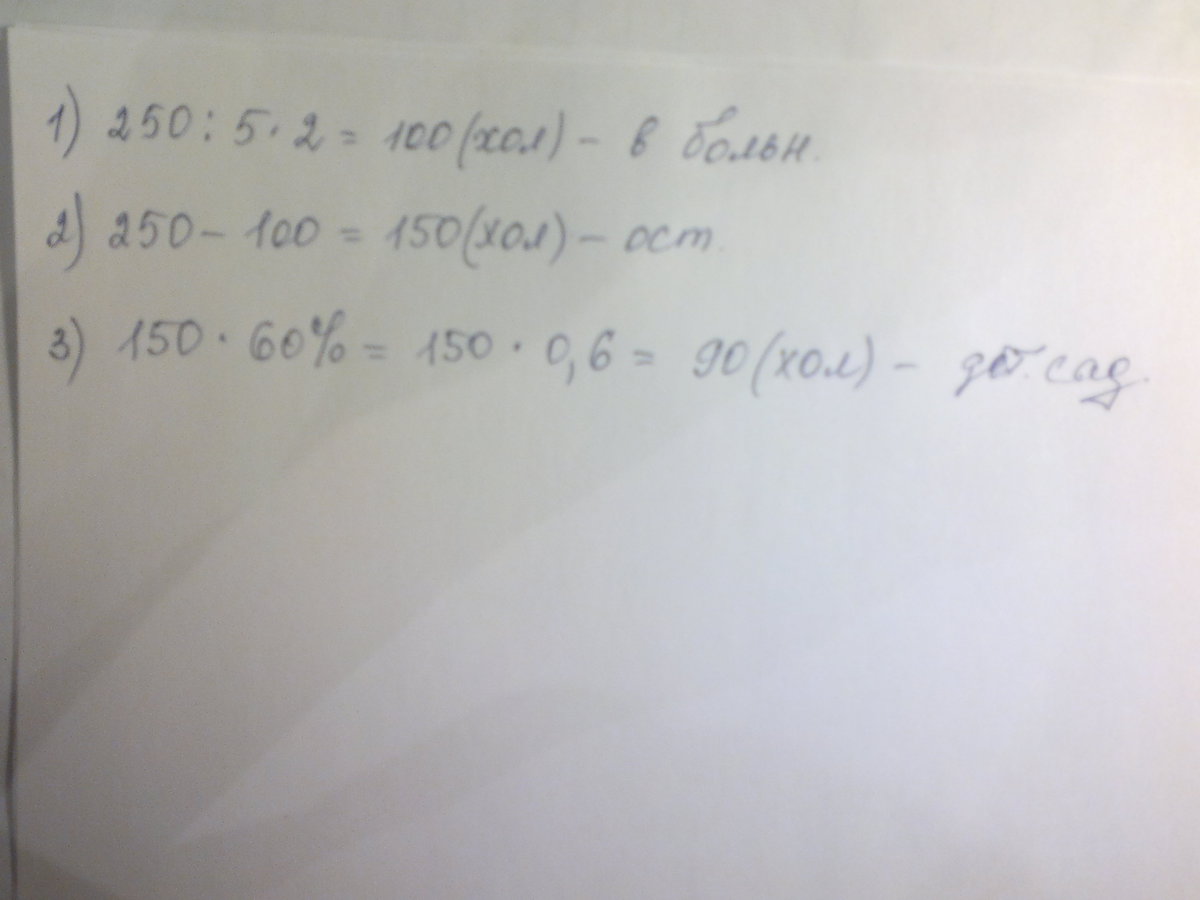 1) 250 : 5 · 2 = 100 (хол) - в больн.
2) 250 - 100 = 150 (хол) - ост.
3) 150 · 60% = 150 · 0,6 = 90 (хол) - дет. сад.